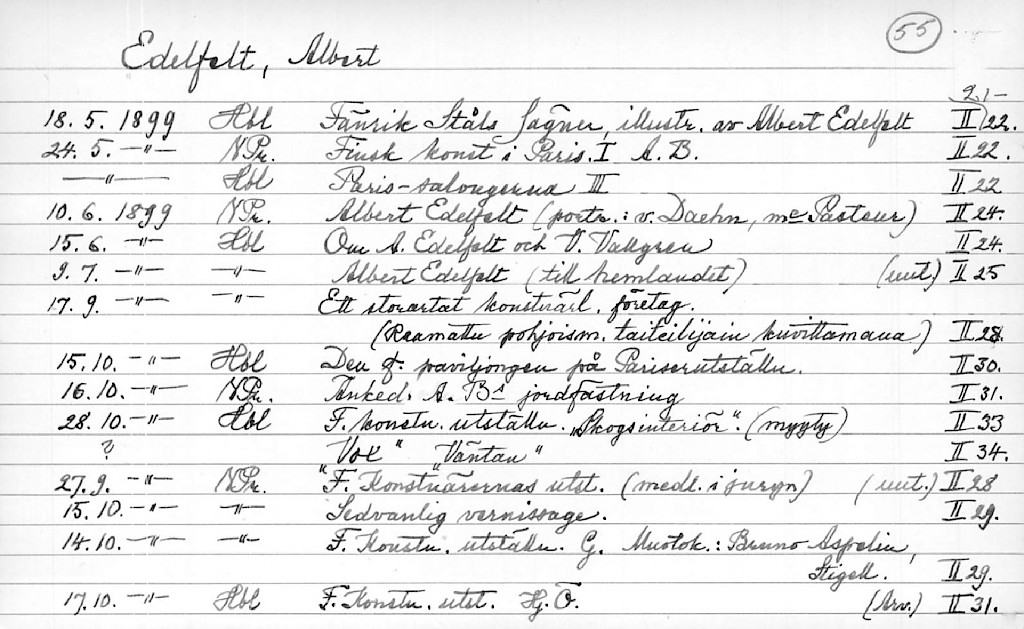 55
Edelfelt, Albert
21-
18. 5. 1899 Hbl Fänrik Ståls Sägner, illustr. av Albert Edelfelt II 22.
24. 5. -"- N Pr. Finsk konst i Paris. I A. B. II 22.
-"- Hbl Paris-salongerna III II 22
10. 6. 1899 N Pr. Albert Edelfelt (portr.: v. Daehn, mc Pasteur) II 24.
15. 6. -"- Hbl Om A. Edelfelt och V. Vallgren II 24.
9. 7. -"- -"- Albert Edelfelt (till hemlandet) (uut.) II 25
17. 9. -"- -"- Ett storartat konstnärl. företag.
(Raamattu pohjoism. taiteilijain kuvittamana) II 28.
15. 10. -"- Hbl Den f. paviljongen på Pariserutställn. II 30.
16. 10. -"- N Pr. Anked. A. Bs jordfästning II 31.
28. 10. -"- Hbl F. konstn. utställn. "Skogsinteriör". (myyty) II 33
? Vox "Väntan" II 34.
27. 9. -"- N Pr. "F. Konstnärernas utst. (medl. i juryn) (uut.) II 28
15. 10. -"- -"- Sedvanlig vernissage. II 29.
14. 10. -"- -"- F. Konstn. utställn. G. Muotok.: Bruno Aspelin,
Stigell. II 29.
17. 10. -"- Hbl F. Konstn. utst. Hj. O. (Arv.) II 31.